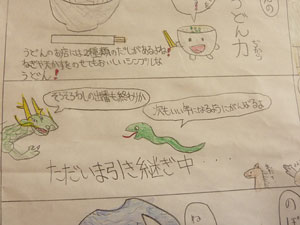 うどん力
うどんのお店には2種類のだしがあるよね!
ねぎや天かすをのせてもおいしいシンプルな
うどん!
そろそろわしの出番も終わりか
次もいい年になるようにがんばるよ
ただいま引き継ぎ中・・・・